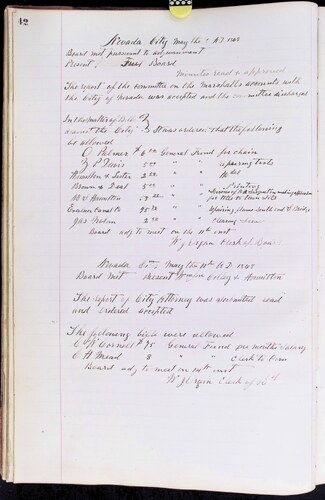 42
Nevada City May the A.D. 1868
Board met pursuant to adjournment
Present, Full Board
Minutes read & approved
The report of the committee on the Marshalls accounts with
the City of Nevada was accepted and the committee discharged
In the matter of Bills
against the City It was ordered that the following
be allowed
O Palmer $6 00 General Fund for chain
Z P Davis 5 00 " " repairing tools
Hamilton & Sister 2 " "
Brown & Deal 5 00 " " Printing
M S Hamilton 59 " "
for title to Town Site
Evalun Eavalto 95 " " repairing flume South end of Bridge
Jas " "
Board adj to meet on the 11th inst
W J Organ Clerk of Board
Nevada City May the 11th A.D. 1868
Board met Present & Hamilton
The report of City Attorney was submitted read
and ordered accepted
The following bills were allowed
W Cornell $75 General Fund one months Salary
A H Mead 3 " " Cash to
Board adj to meet on 14th inst
W J Organ Clerk of Bd